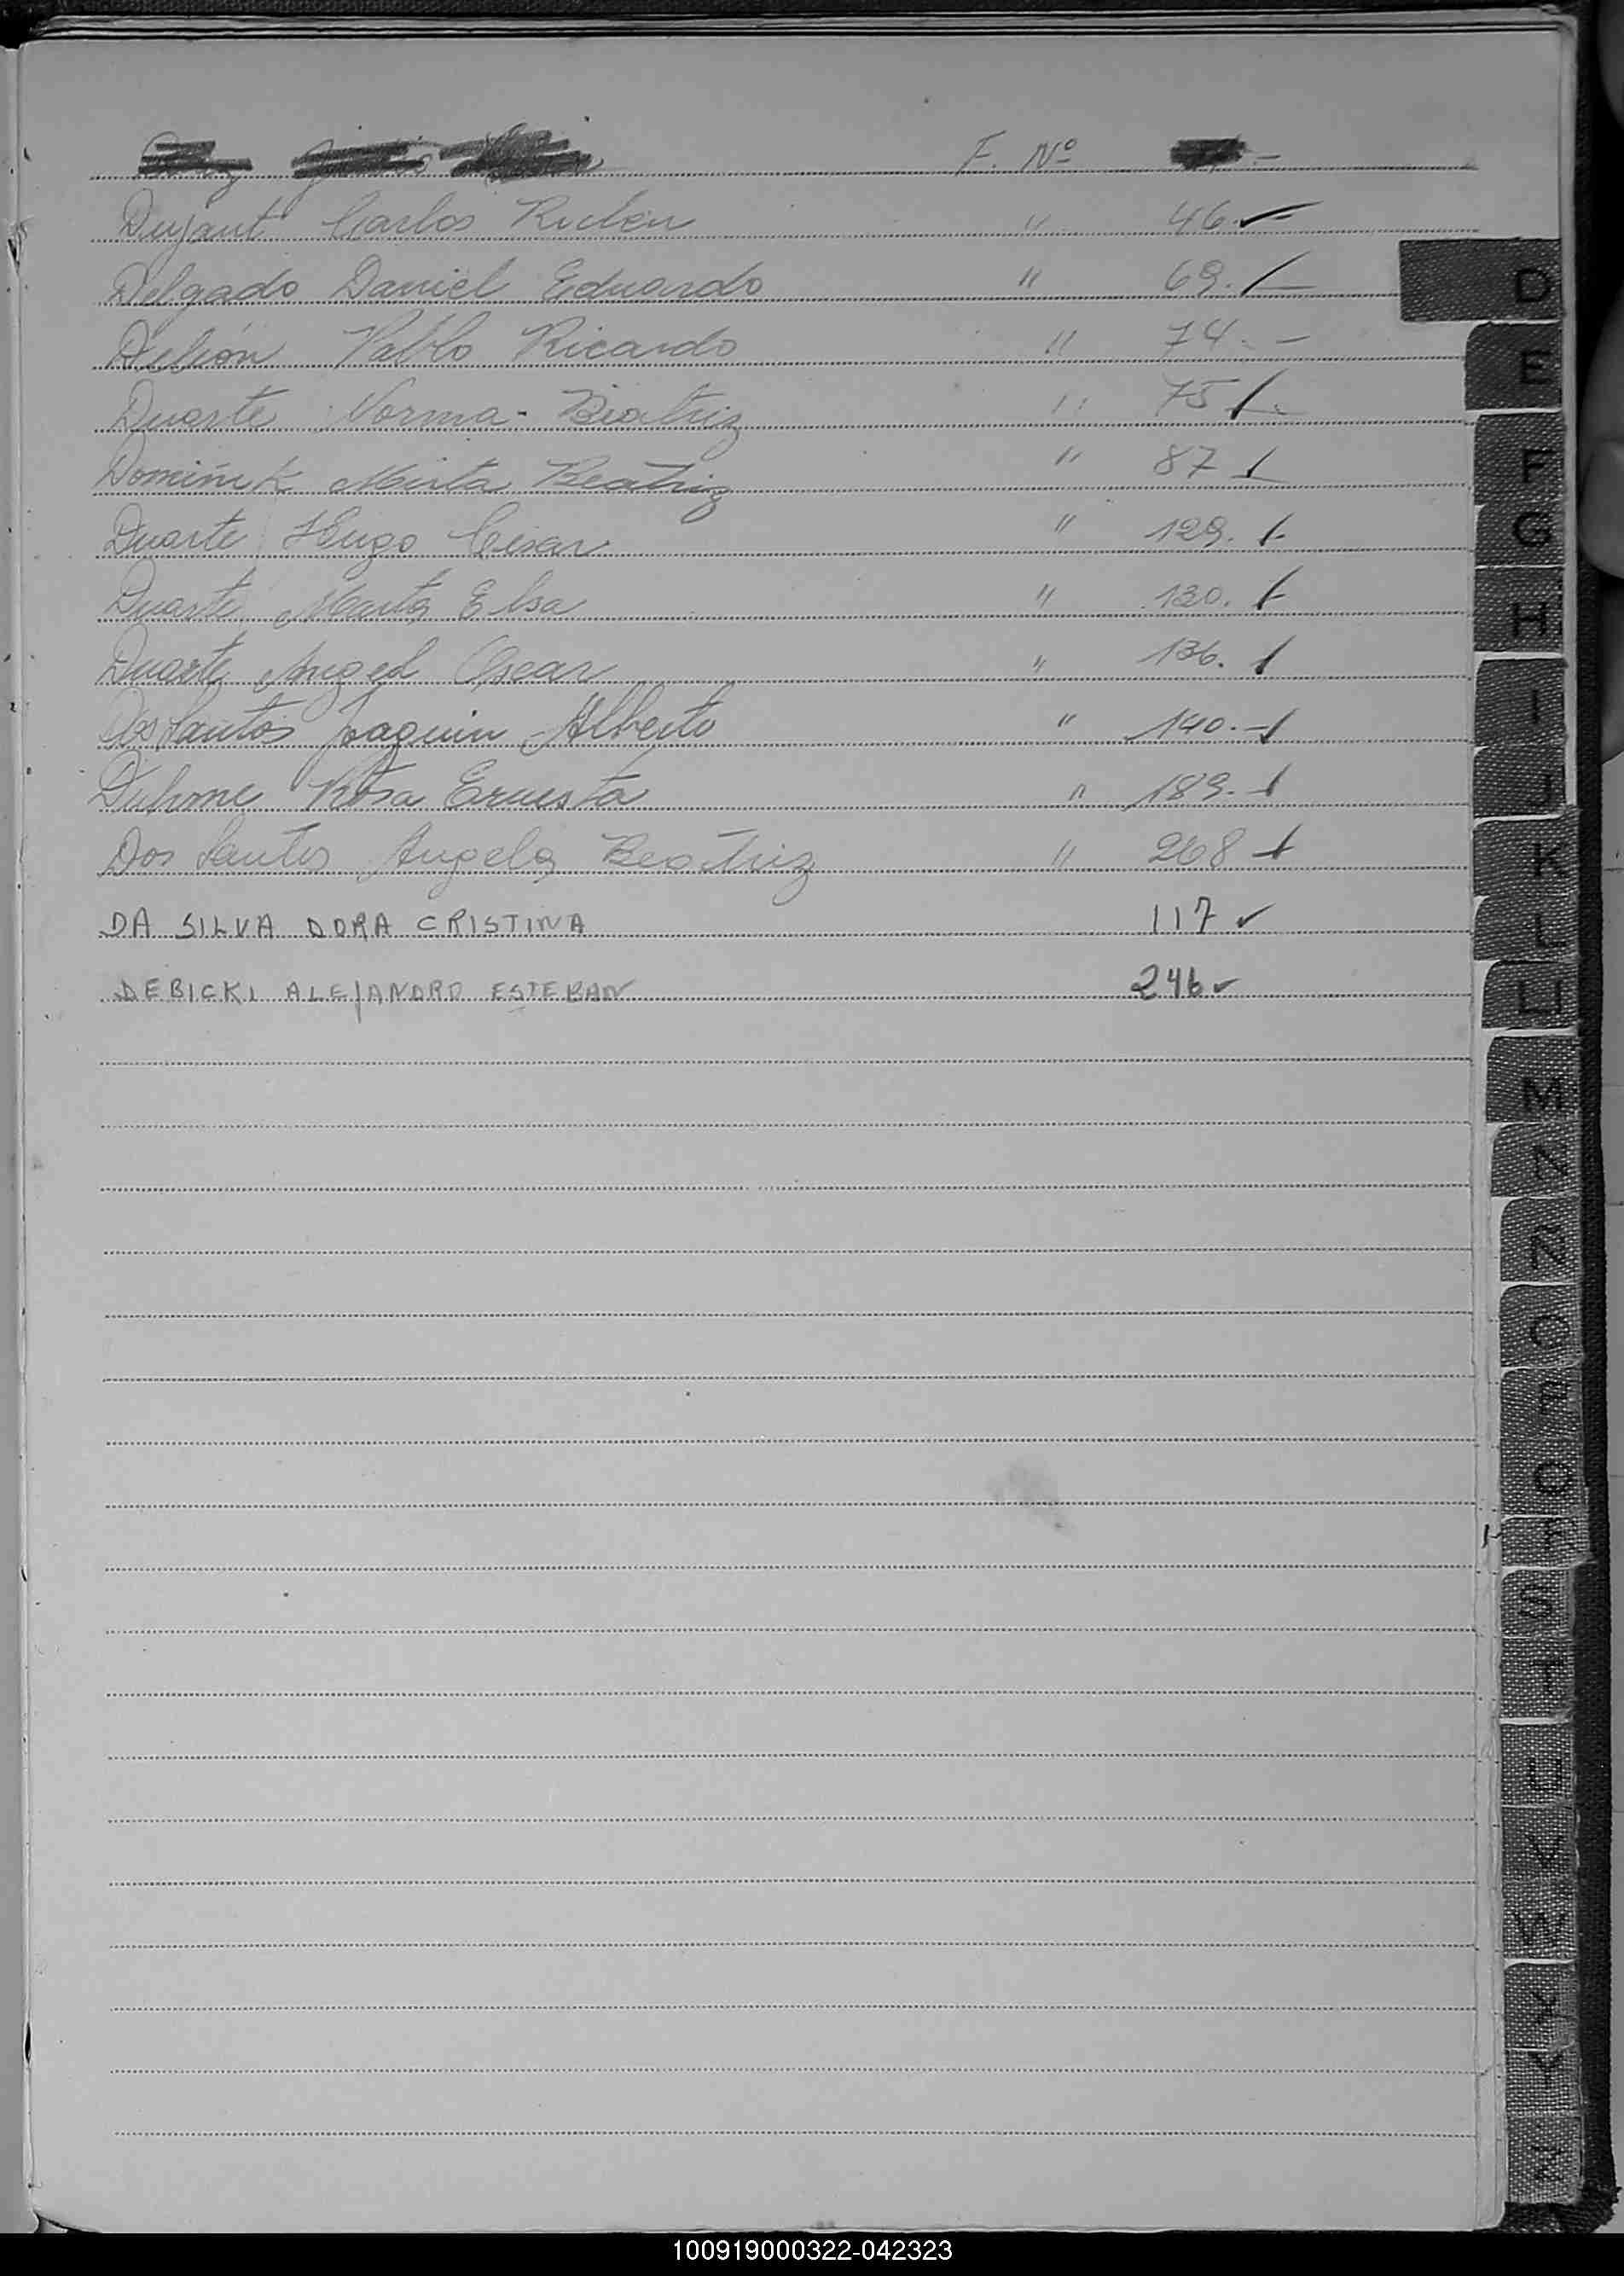 F. Nº
Dujant Carlos Ruben " 46.-
Delgado Daniel Eduardo " 69.-
Deleón Pablo Ricardo " 74.-
Duarte Norma Beatriz " 75.-
Mirta Beatriz " 87
Duarte Hugo César " 129.-
Duarte Marta Elsa " 130.-
Duarte Angel Oscar " 136.
Dos Santos Joaquin Alberto " 140.-
Rosa Ernesta " 189.-
Dos Santos Angela Beatriz " 268
DA SILVA DORA CRISTINA 117 ✓
DEBICKI ALEJANDRO ESTEBAN 246 ✓
D
E
F
G
H
I
J
K
L
LL
M
N
Ñ
O
P
Q
R
S
T
U
V
W
X
Y
Z
100919000322-042323